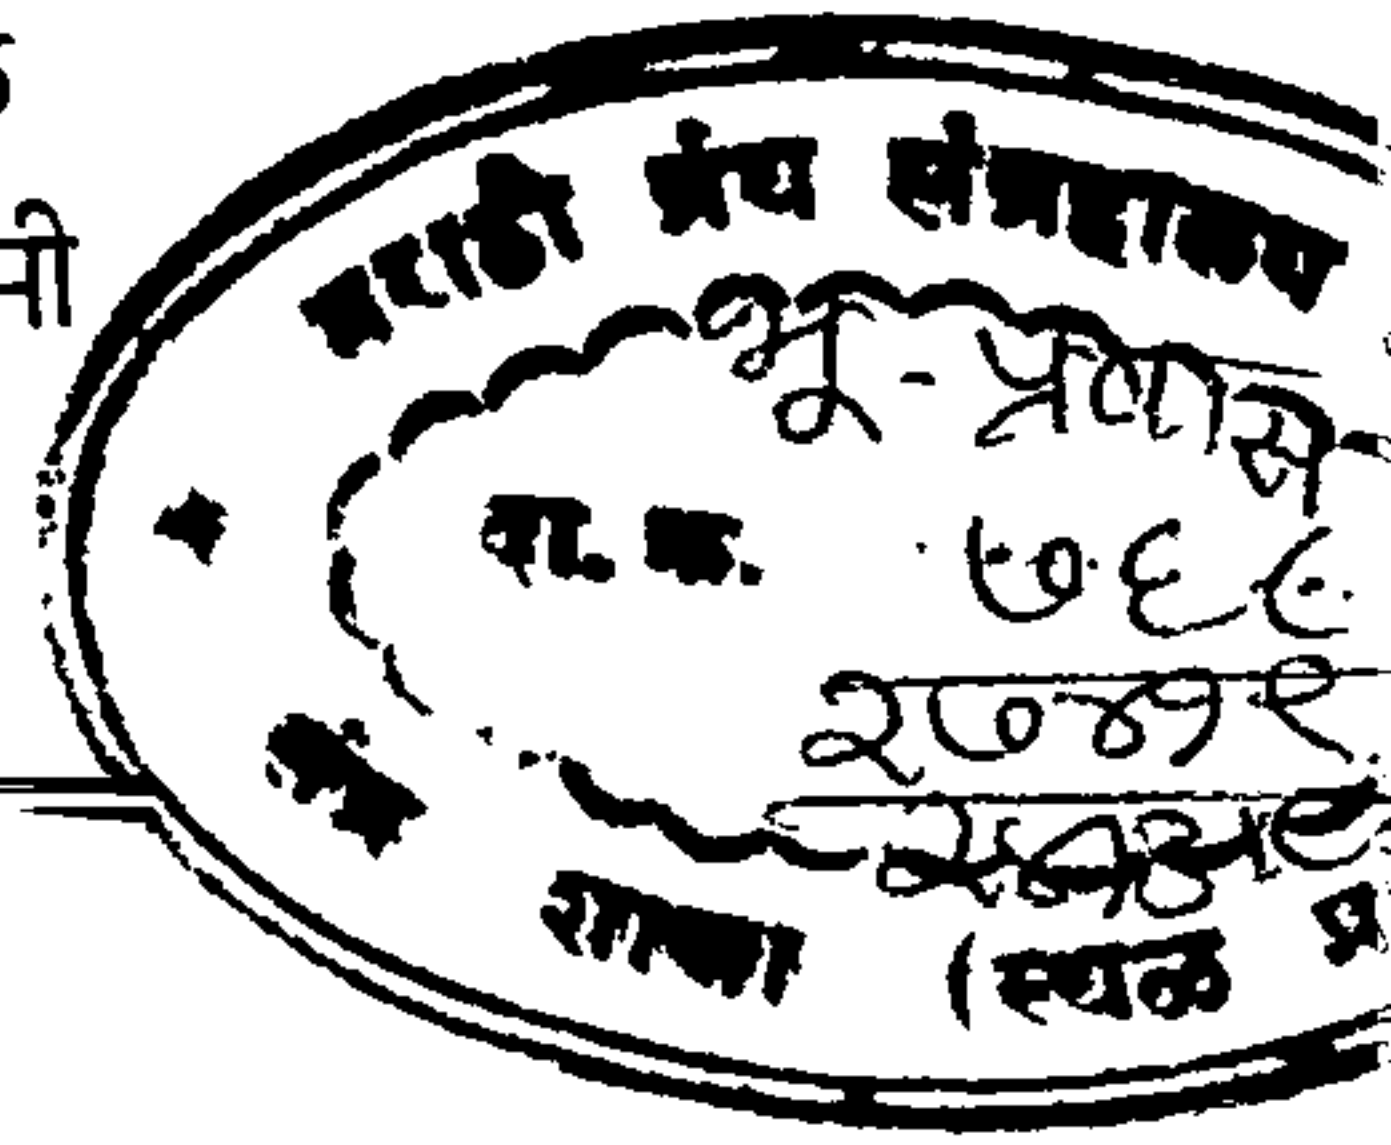 मराठी ग्रंथ संग्रहालय
भू-प्रवास
वा. क्र. ७६९
२७४१९
शाखा (स्थळ प्र